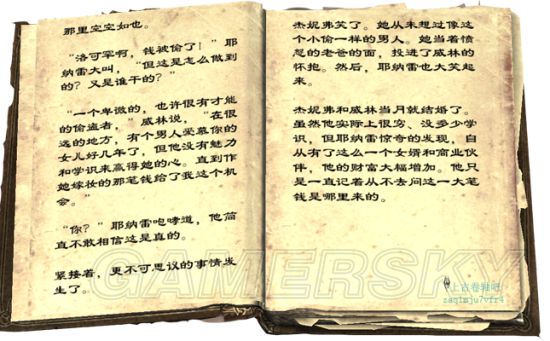 那里空空如也。
“洛可罕啊，钱被偷了！”耶
纳雷大叫，“但这是怎么做到
的？又是谁干的？”
“一个卑微的，也许很有才能
的偷盗者，”威林说，“在很
远的地方，有个男人爱慕你的
女儿好几年了，但他没有魅力
和学识来赢得她的心。直到作
她嫁妆的那笔钱给了我这个机
会。”
“你？”耶纳雷咆哮道，他简
直不敢相信这是真的。
紧接着，更不可思议的事情发
生了。
杰妮弗笑了。她从未想过像这
个小偷一样的男人。她当着愤
怒的老爸的面，投进了威林的
怀抱。然后，耶纳雷也大笑起
来。
杰妮弗和威林当月就结婚了。
虽然他实际上很穷、没多少学
识，但耶纳雷惊奇的发现，自
从有了这么一个女婿和商业伙
伴，他的财富大幅增加。他只
是一直记着从不去问这一大笔
钱是哪里来的。
GAMERSKY
上古卷轴吧
zaq1mju7vfr4